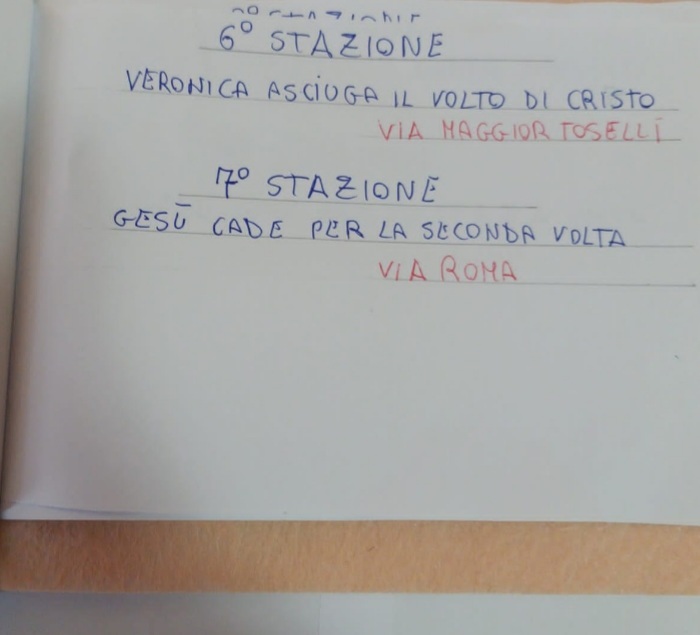 6° STAZIONE
VERONICA ASCIUGA IL VOLTO DI CRISTO
VIA MAGGIOR TOSELLI
7° STAZIONE
GESÙ CADE PER LA SECONDA VOLTA
VIA ROMA